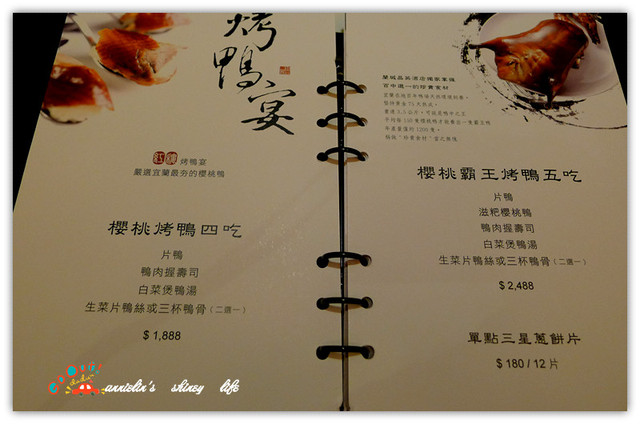 烤鴨宴
紅樓 烤鴨宴
嚴選宜蘭最夯的櫻桃鴨
櫻桃烤鴨四吃
片鴨
鴨肉握壽司
白菜煲鴨湯
生菜片鴨絲或三杯鴨骨(二選一)
$ 1,888
蘭城晶英酒店獨家專殊
百中選一的珍貴食材
櫻桃霸王烤鴨五吃
片鴨
滋粑櫻桃鴨
鴨肉握壽司
白菜煲鴨湯
生菜片鴨絲或三杯鴨骨(二選一)
$ 2,488
單點三星蔥餅片
$ 180 / 12 片
annielin's shiney life